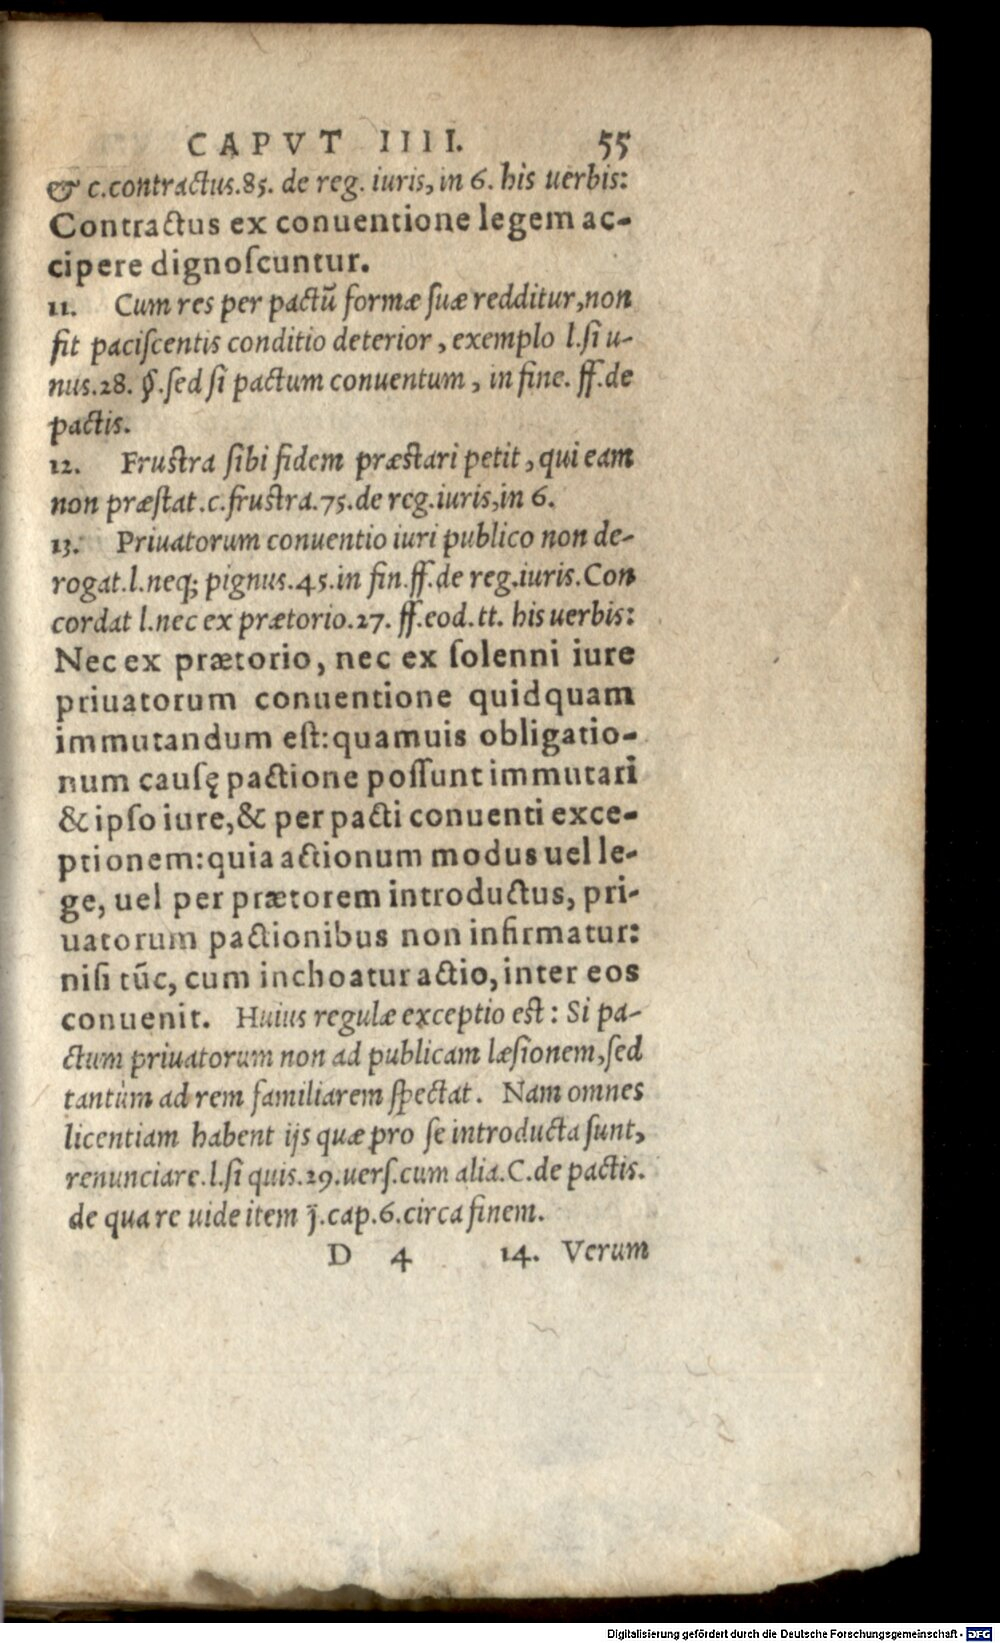 CAPVT IIII. 55
& c.contractus.85. de reg. iuris, in 6. his uerbis:
Contractus ex conuentione legem ac-
cipere dignoſcuntur.
11. Cum res per pactũ formæ ſuæ redditur, non
fit paciſcentis conditio deterior, exemplo l.ſi u-
nus.28. §.ſed ſi pactum conuentum, in fine. ff.de
pactis.
12. Fruſtra ſibi fidem præſtari petit, qui eam
non præſtat.c.fruſtra.75.de reg.iuris,in 6.
13. Priuatorum conuentio iuri publico non de-
rogat.l.neq; pignus.45.in fin.ff.de reg.iuris.Con
cordat l.nec ex prætorio.27. ff.eod.tt. his uerbis:
Nec ex prætorio, nec ex ſolenni iure
priuatorum conuentione quidquam
immutandum eſt:quamuis obligatio-
num cauſę pactione poſſunt immutari
& ipſo iure,& per pacti conuenti exce-
ptionem:quia actionum modus uel le-
ge, uel per prætorem introductus, pri-
uatorum pactionibus non infirmatur:
niſi tũc, cum inchoatur actio, inter eos
conuenit. Huius regulæ exceptio eſt: Si pa-
ctum priuatorum non ad publicam læſionem,ſed
tantùm ad rem familiarem ſpectat. Nam omnes
licentiam habent ijs quæ pro ſe introducta ſunt,
renunciare.l.ſi quis.29.uerſ.cum alia.C.de pactis.
de qua re uide item j̄.cap.6.circa finem.
D 4 14. Verum
Digitalisierung gefördert durch die Deutsche Forschungsgemeinschaft - DFG